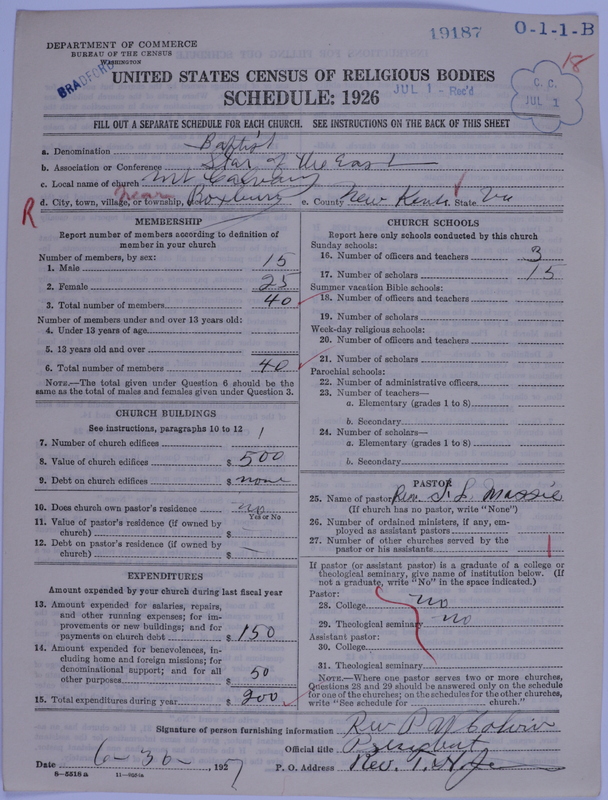 19187 O-1-1-B
DEPARTMENT OF COMMERCE
BUREAU OF THE CENSUS
WASHINGTON
BRADFORD
18
UNITED STATES CENSUS OF RELIGIOUS BODIES
SCHEDULE: 1926
JUL 1 - Rec'd
C. C.
JUL 1
FILL OUT A SEPARATE SCHEDULE FOR EACH CHURCH. SEE INSTRUCTIONS ON THE BACK OF THIS SHEET
a. Denomination Baptist
b. Association or Conference Star of the East
c. Local name of church Mt Calvary
d. City, town, village, or township, near Boxbury e. County New Kent State Va
R
MEMBERSHIP
Report number of members according to definition of
member in your church
Number of members, by sex:
1. Male 15
2. Female 25
3. Total number of members 40
Number of members under and over 13 years old:
4. Under 13 years of age
5. 13 years old and over
6. Total number of members 40
NOTE.—The total given under Question 6 should be the
same as the total of males and females given under Question 3.
CHURCH BUILDINGS
See instructions, paragraphs 10 to 12
7. Number of church edifices 1
8. Value of church edifices $ 500
9. Debt on church edifices $ none
10. Does church own pastor's residence no
Yes or No
11. Value of pastor's residence (if owned by
church) $
12. Debt on pastor's residence (if owned by
church) $
EXPENDITURES
Amount expended by your church during last fiscal year
13. Amount expended for salaries, repairs,
and other running expenses; for im-
provements or new buildings; and for
payments on church debt $ 150
14. Amount expended for benevolences, in-
cluding home and foreign missions; for
denominational support; and for all
other purposes $ 50
15. Total expenditures during year $ 200
CHURCH SCHOOLS
Report here only schools conducted by this church
Sunday schools:
16. Number of officers and teachers 3
17. Number of scholars 15
Summer vacation Bible schools:
18. Number of officers and teachers
19. Number of scholars
Week-day religious schools:
20. Number of officers and teachers
21. Number of scholars
Parochial schools:
22. Number of administrative officers
23. Number of teachers—
a. Elementary (grades 1 to 8)
b. Secondary
24. Number of scholars—
a. Elementary (grades 1 to 8)
b. Secondary
PASTOR
25. Name of pastor Rev. S. L. Massie
(If church has no pastor, write "None")
26. Number of ordained ministers, if any, em-
ployed as assistant pastors
27. Number of other churches served by the
pastor or his assistants 1
If pastor (or assistant pastor) is a graduate of a college or
theological seminary, give name of institution below. (If
not a graduate, write "No" in the space indicated.)
Pastor:
28. College no
29. Theological seminary no
Assistant pastor:
30. College
31. Theological seminary
NOTE.—Where one pastor serves two or more churches,
Questions 28 and 29 should be answered only on the schedule
for one of the churches; on the schedules for the other churches,
write "See schedule for church."
Signature of person furnishing information Rev P
Official title President
Date 6-30, 1927 P. O. Address Rev.
8-5518 a